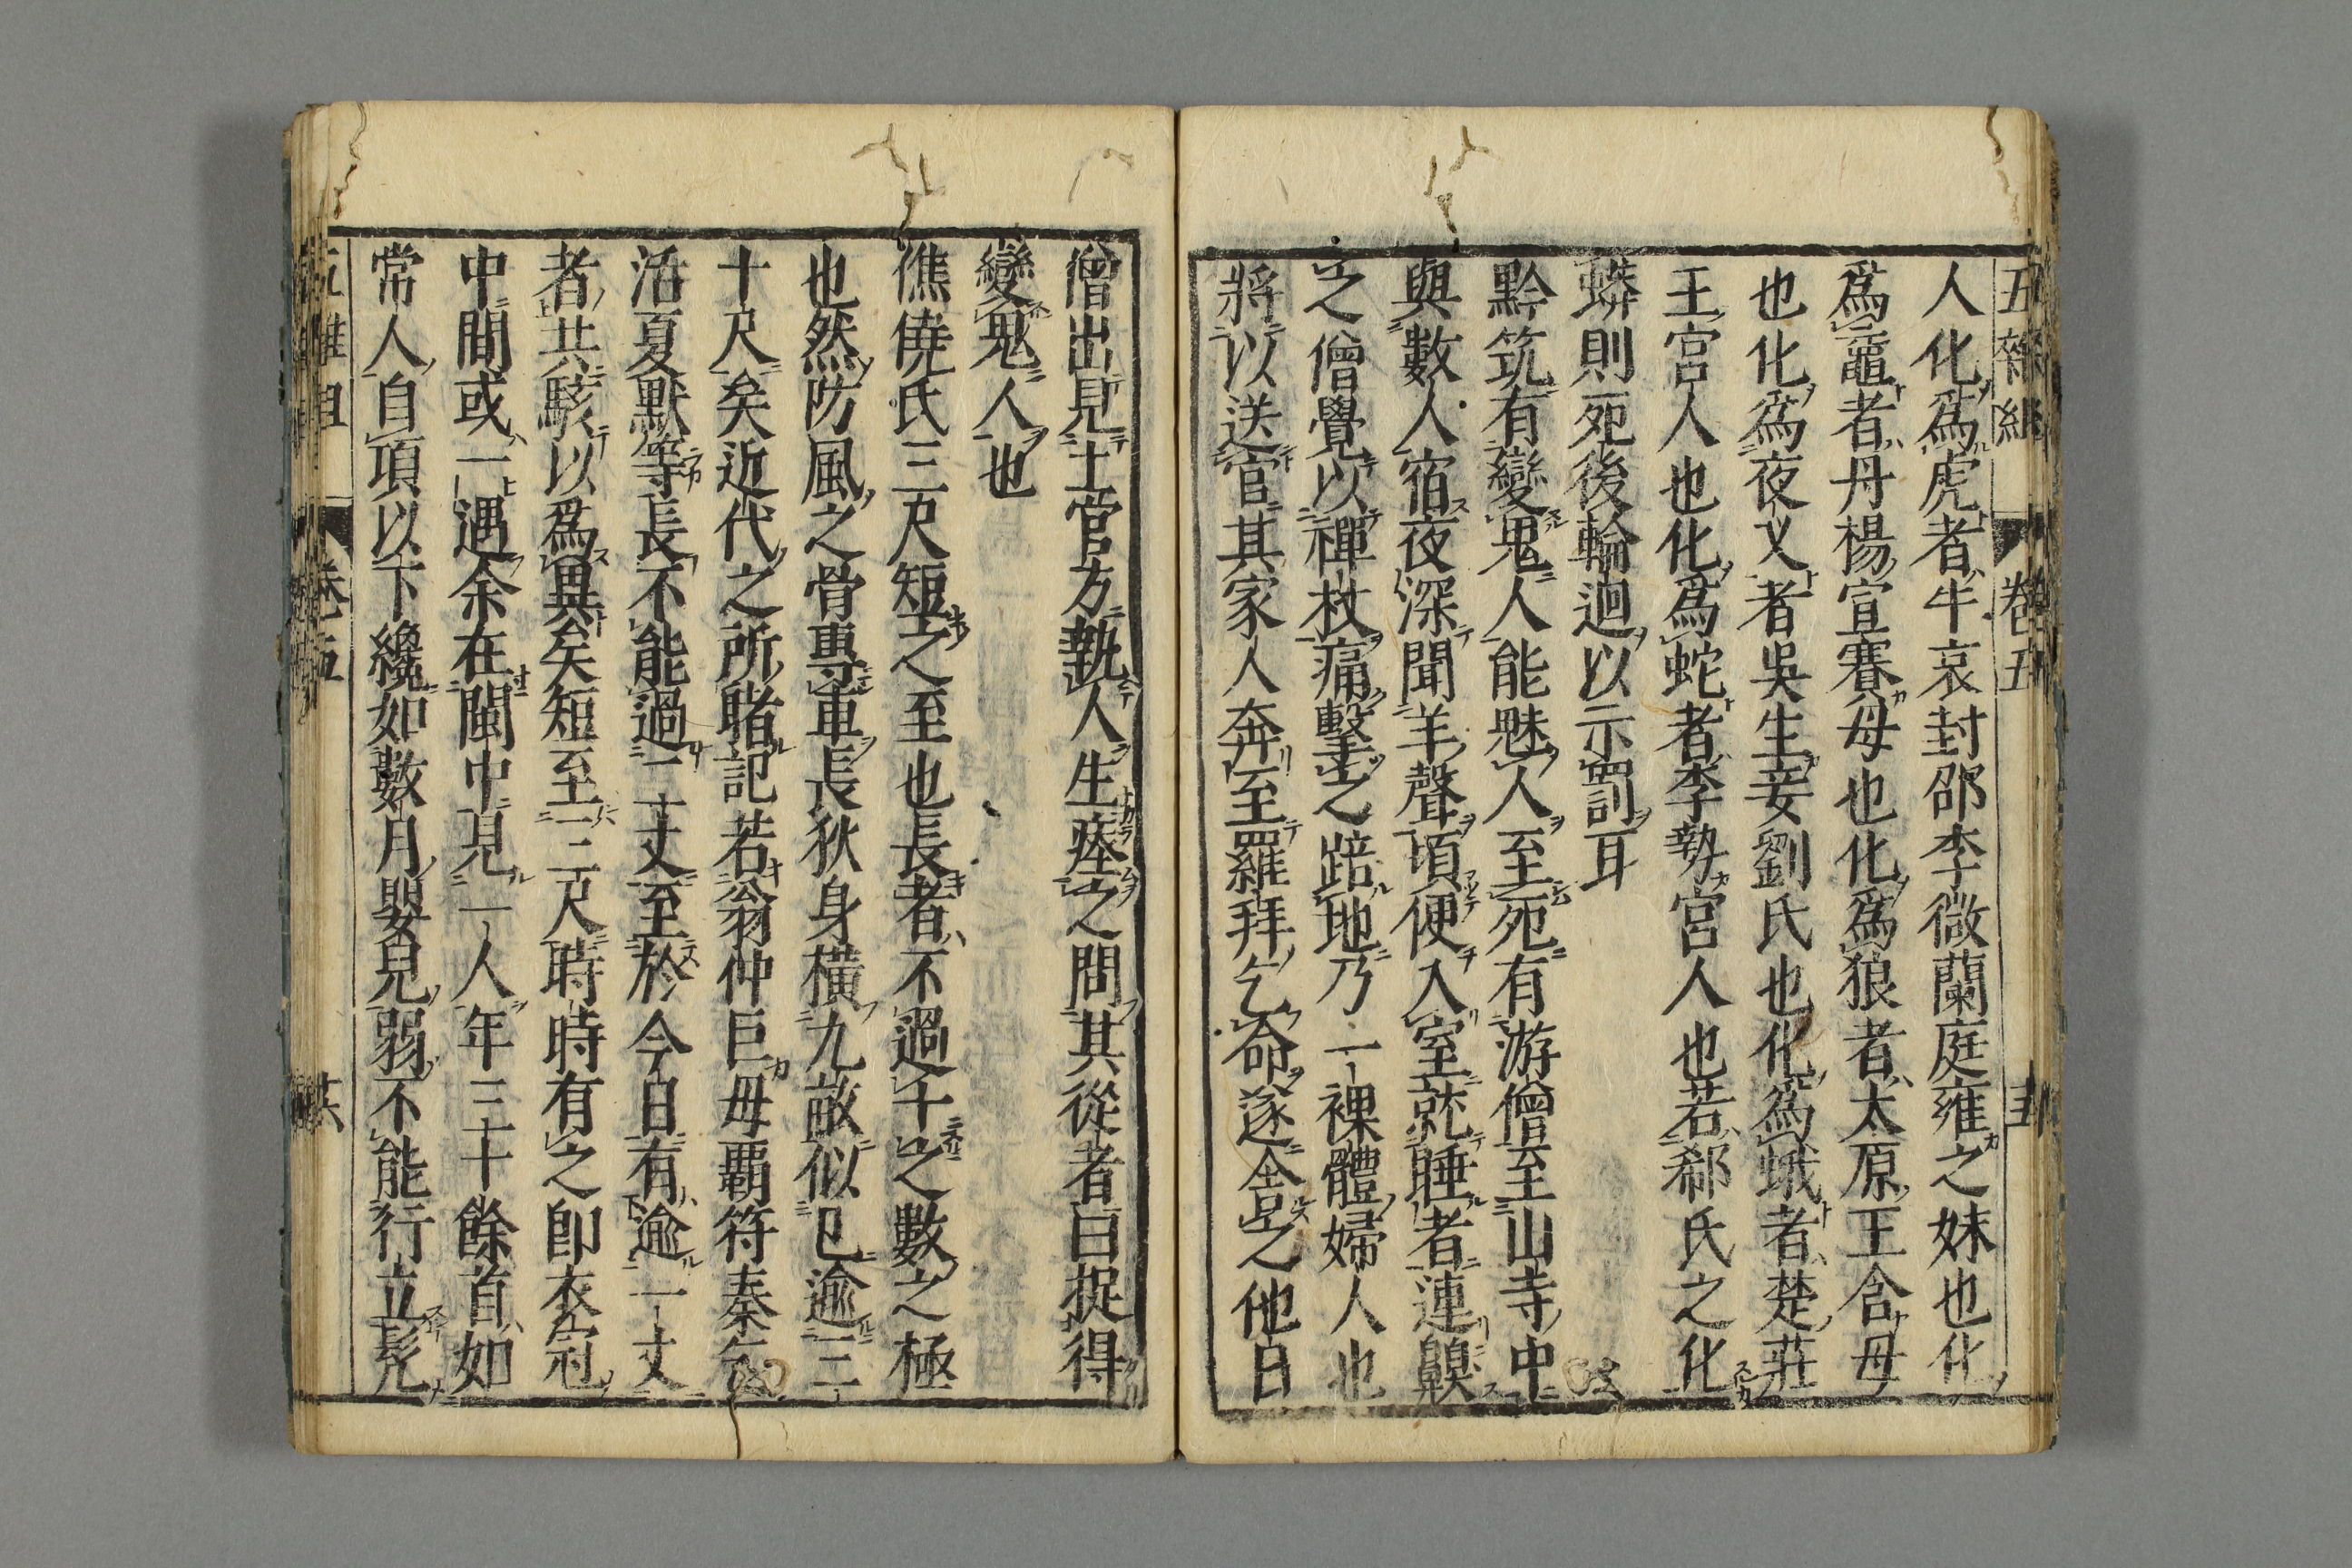 五雜組 卷五
人化爲虎者牛哀封邵李微蘭庭雍之妹也化
爲黿者丹楊宣騫母也化爲狼者太原王含母
也化爲夜叉者吳生妾劉氏也化爲蛾者楚莊
王宮人也化爲蛇者李勢宮人也若郗氏之化
蟒則死後輪迴以示罰耳
黔筑有變鬼人能魅人至死有游僧至山寺中
與數人宿夜深聞羊聲頃便入室就睡者連齅
之僧覺以禪杖痛擊之踣地乃一裸體婦人也
將以送官其家人奔至羅拜乞命遂舍之他日
僧出見土官方執人生瘞之問其從者曰捉得
變鬼人也
僬僥氏三尺短之至也長者不過十之數之極
也然防風之骨專車長狄身橫九畝似已逾三
十尺矣近代之所睹記若翁仲巨毋霸符秦乞
活夏默等長不能過二丈至於今日有逾一丈
者共駭以爲異矣短至二三尺時時有之卽衣冠
中間或一遇余在閩中見一人年三十餘首如
常人自項以下纔如數月嬰兒弱不能行立髡
五雜組 卷五